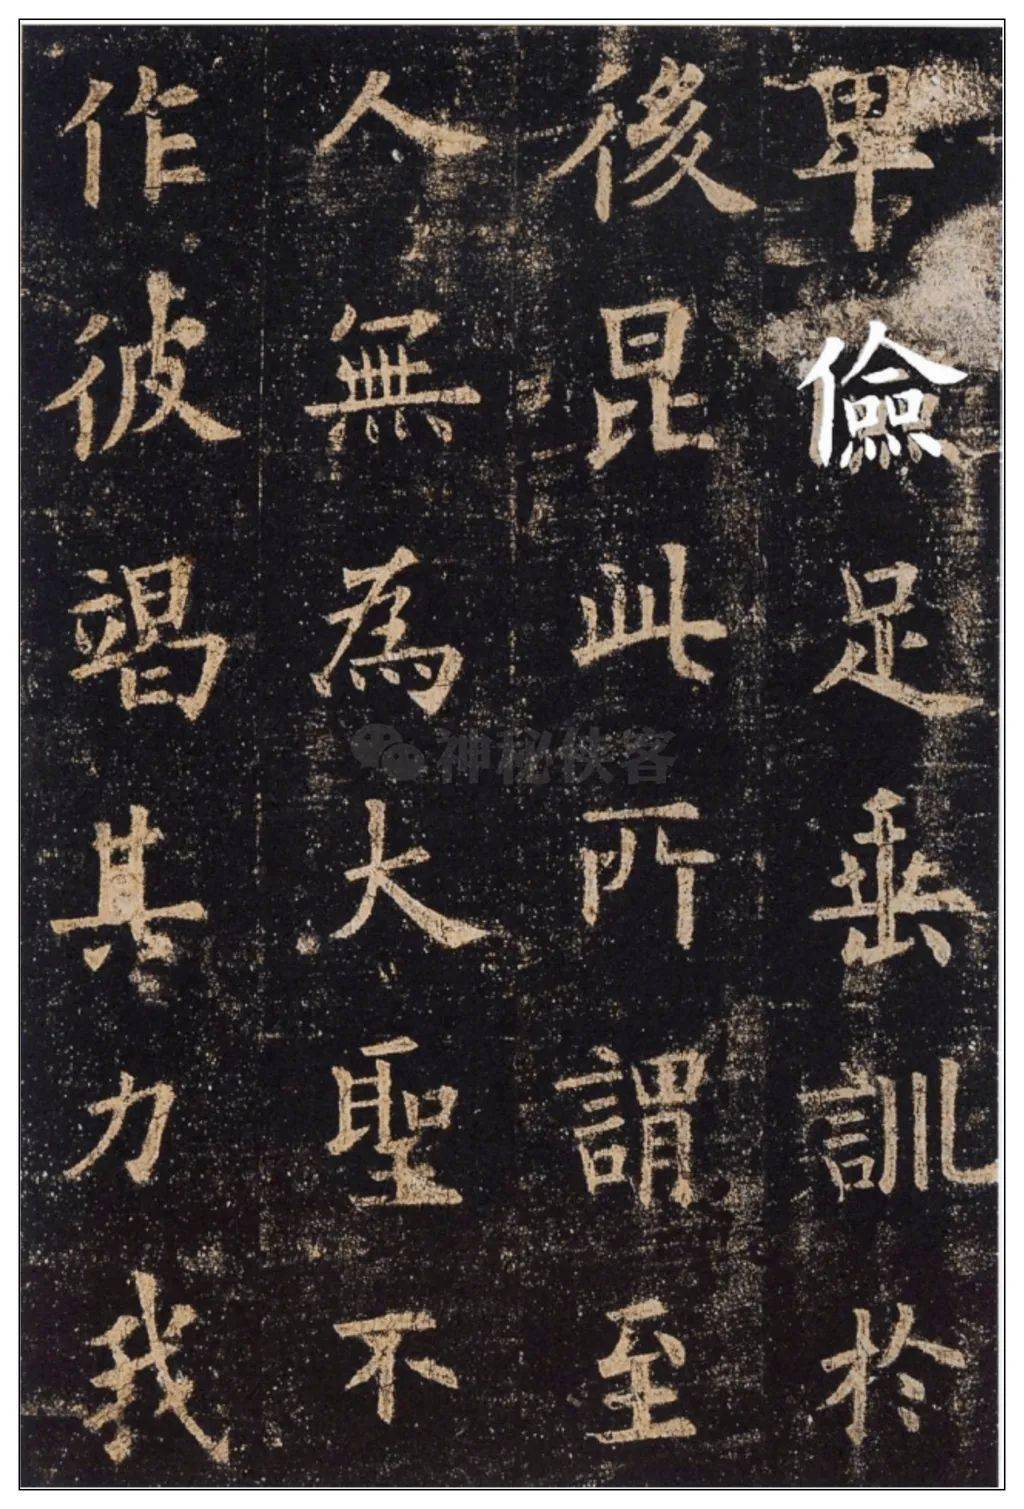 卑儉足垂訓於
後昆此所謂至
人無為大聖不
作彼竭其力我
神秘侠客